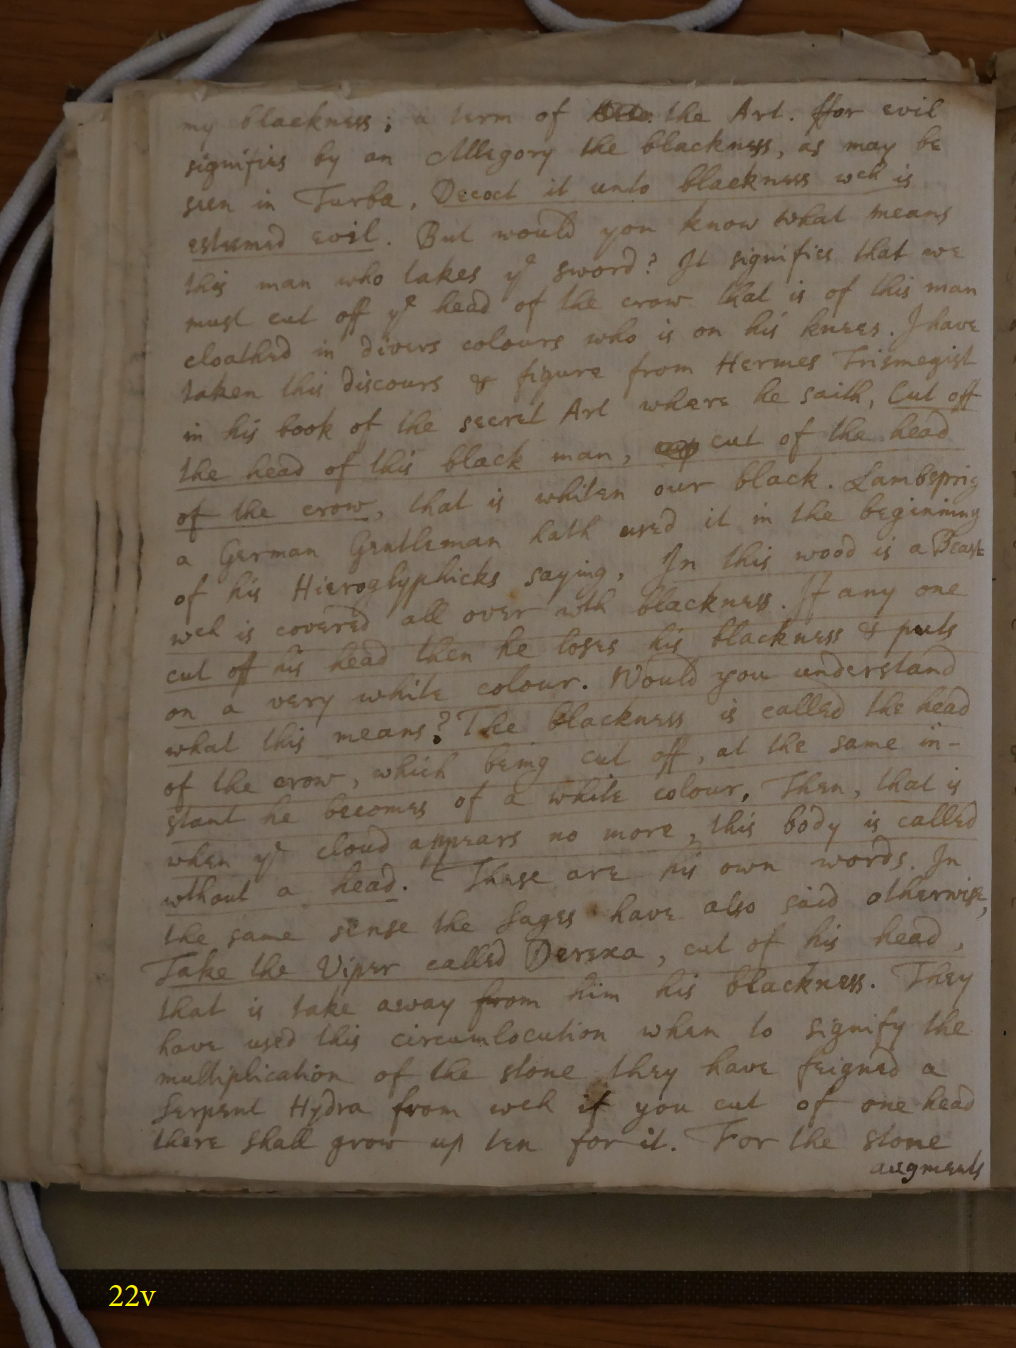 my blackness; a term of the Art. ffor evil
signifies by an Allegory the blackness, as may be
seen in Turba, Decoct it unto blackness wch is
esteemed evil. But would you know what means
this man who takes ye sword? It signifies that we
must cut off ye head of the crow that is of this man
cloathed in divers colours who is on his knees. I have
taken this discours & figure from Hermes Trismegist
in his book of the secret Art where he saith, Cut off
the head of this black man, cut of the head
of the crow, that is whiten our black. Lambsprig
a German Gentleman hath used it in the beginning
of his Hieroglyphicks saying, In this wood is a Beast
wch is covered all over wth blackness. If any one
cut off his head then he loses his blackness & puts
on a very white colour. Would you understand
what this means? The blackness is called the head
of the crow, which being cut off, at the same in-
stant he becomes of a white colour, Then, that is
when ye cloud appears no more, this body is called
wthout a head. These are his own words. In
the same sense the Sages have also said otherwise,
Take the Viper called Derexa, cut of his head,
that is take away from him his blackness. They
have used this circumlocution when to signify the
multiplication of the stone they have feigned a
Serpent Hydra from wch if you cut of one head
there shall grow up ten for it. For the stone
augments
22v